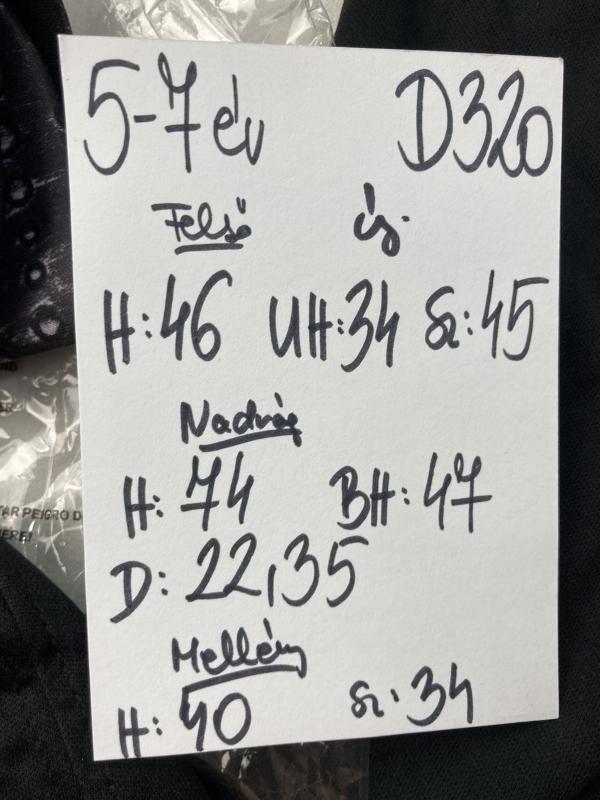 5-7 év D320
Felső és
H: 46 UH: 34 Sz: 45
Nadrág
H: 74 BH: 47
D: 22,35
Mellény
H: 40 Sz: 34
TAR PEIGRO D